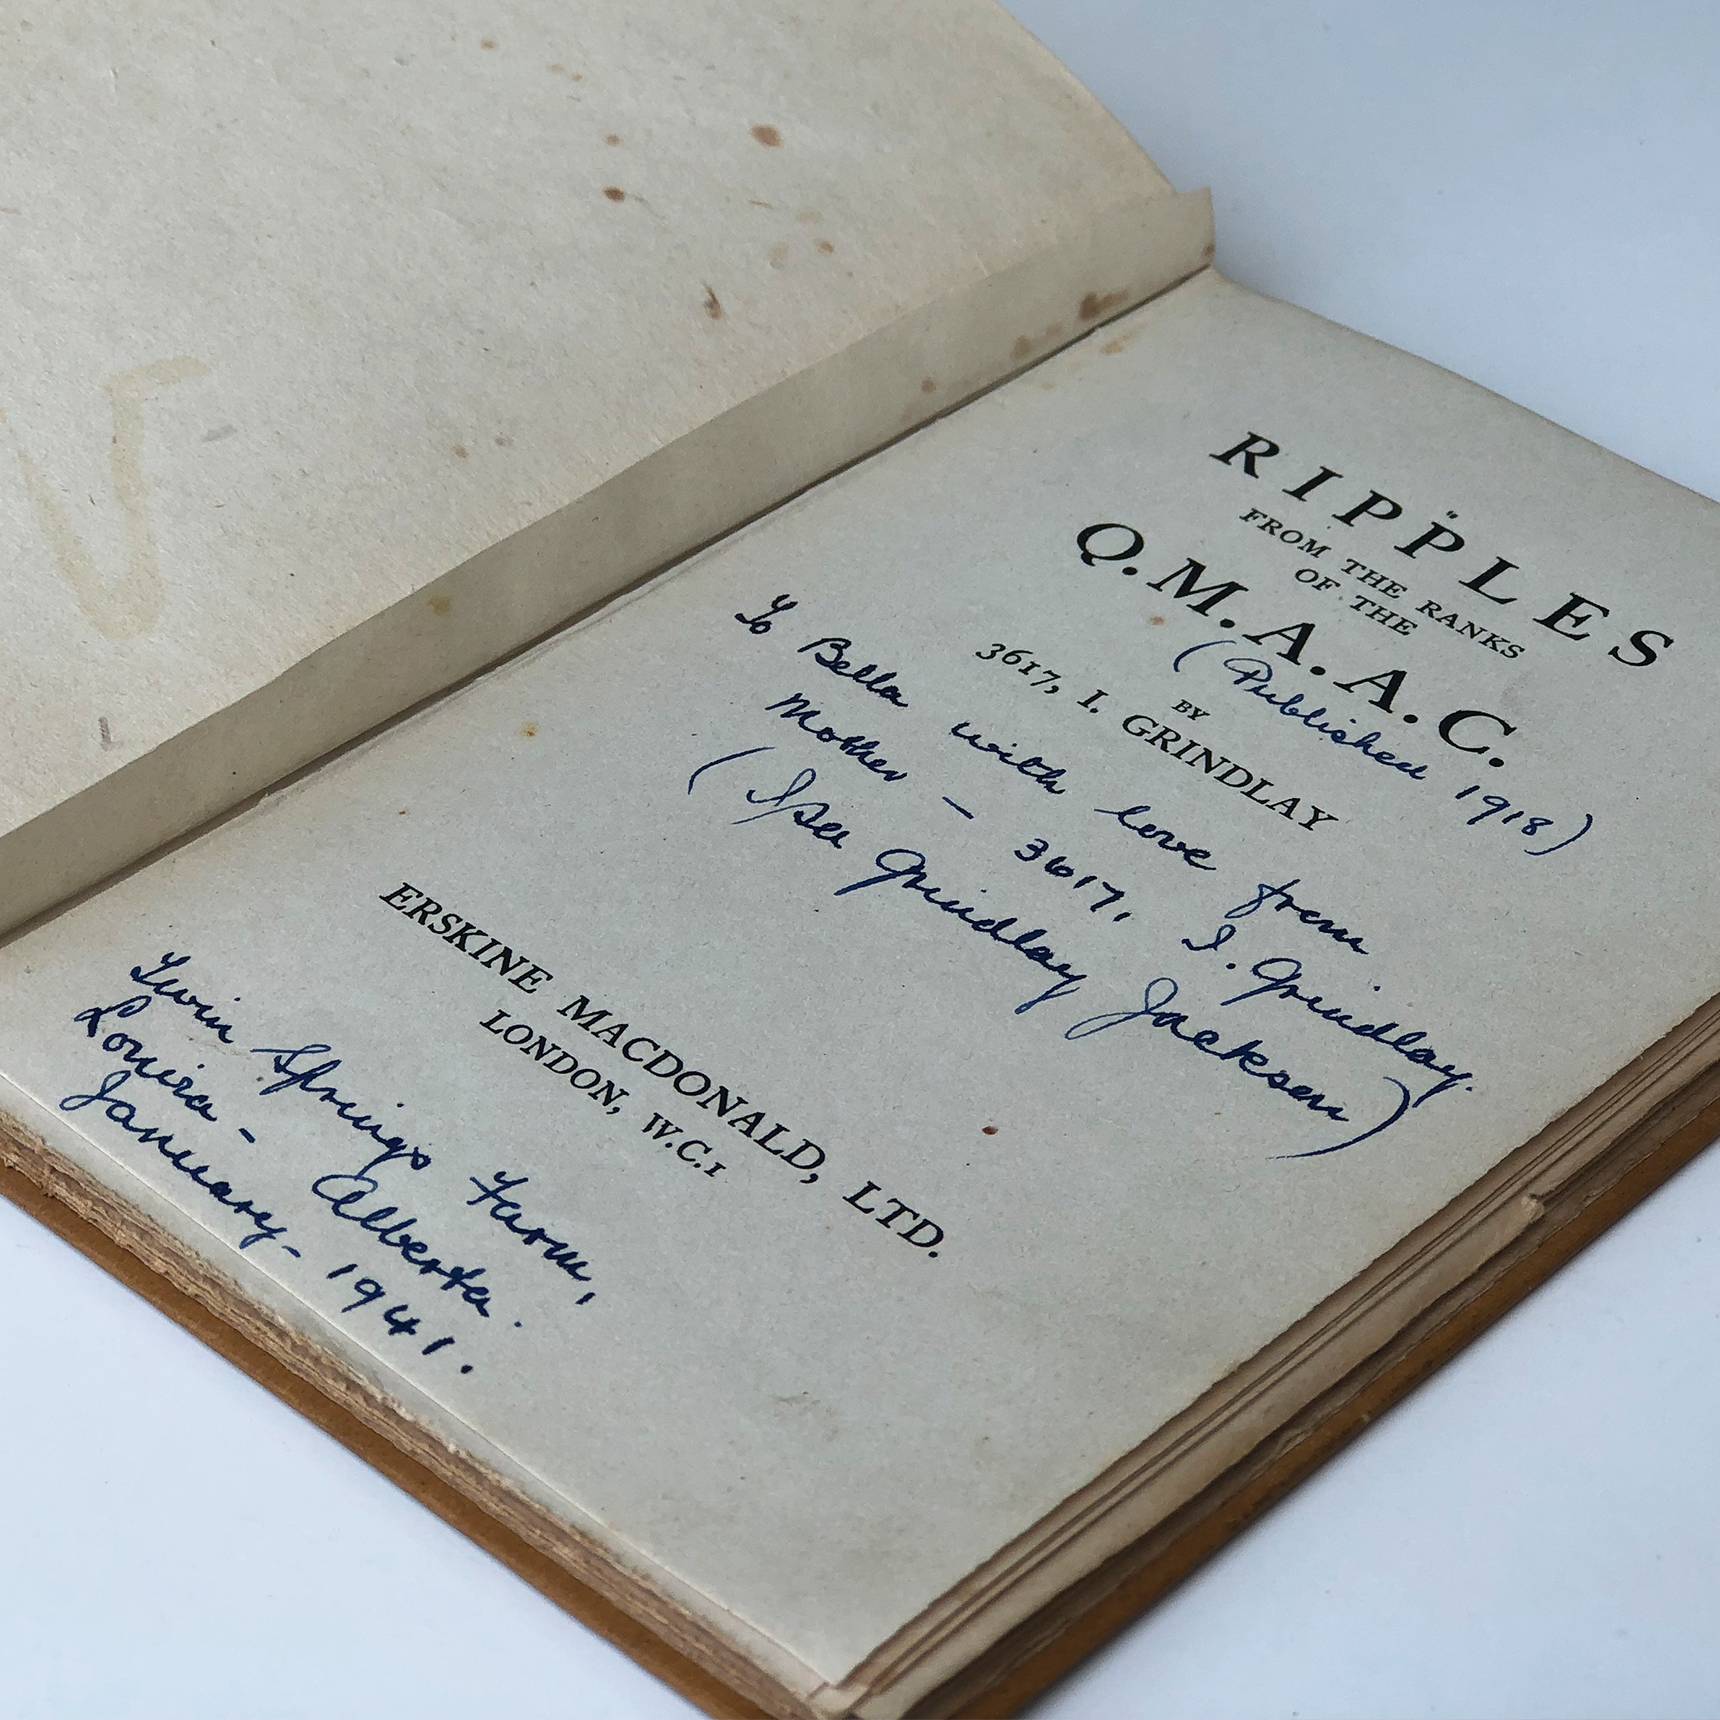 RIPPLES
FROM THE RANKS
OF THE
Q.M.A.A.C.
(Published 1918)
BY
3617, I. GRINDLAY
To Bella with love from
Mother - 3617, I. Grindlay.
(Isca Grindlay Jackson)
ERSKINE MACDONALD, LTD.
LONDON, W.C.1
Twin Springs Farm,
Alberta.
January - 1941.